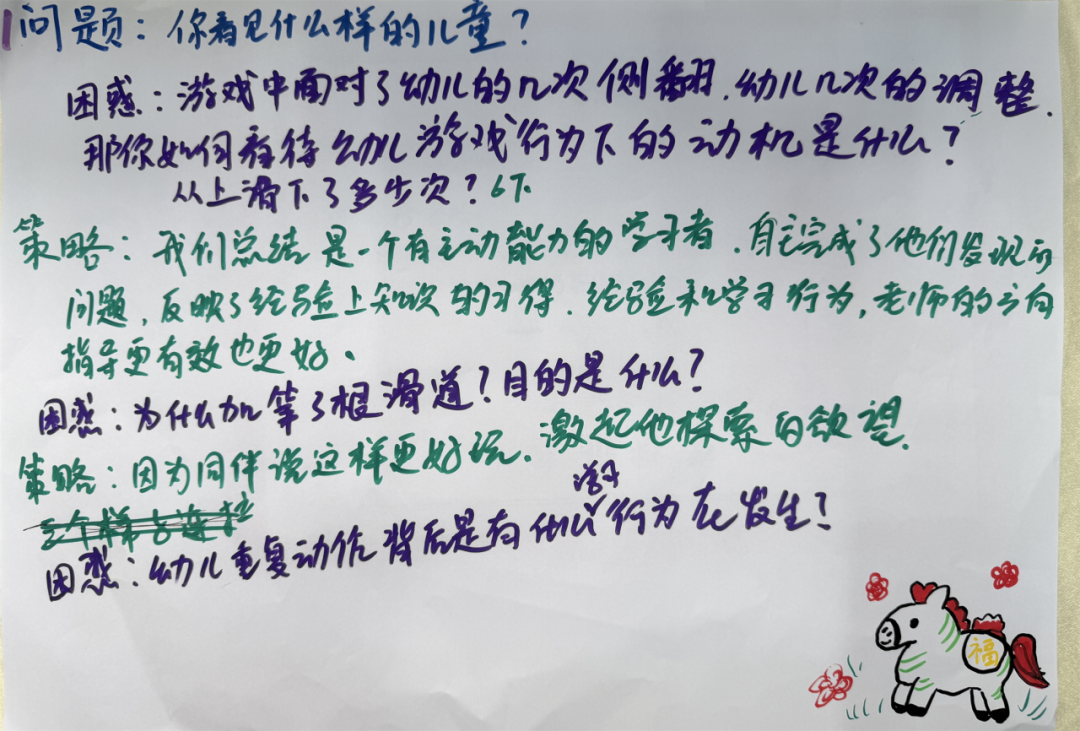 问题：你看见什么样的儿童？
困惑：游戏中面对了幼儿的几次侧翻，幼儿几次的调整.
那你如何看待幼儿游戏行为下的动机是什么？
从上滑下了多少次？6下
策略：我们总结是一个有主动能力的学习者，自主完成了他们发现的
问题，反映了经验上知次的习得，经验和学习行为，老师的方向
指导更有效也更好。
困惑：为什么加第了根滑道？目的是什么？
策略：因为同伴说这样更好玩，激起他探索的欲望.
学习
困惑：幼儿重复动作背后是有什么行为在发生？
福